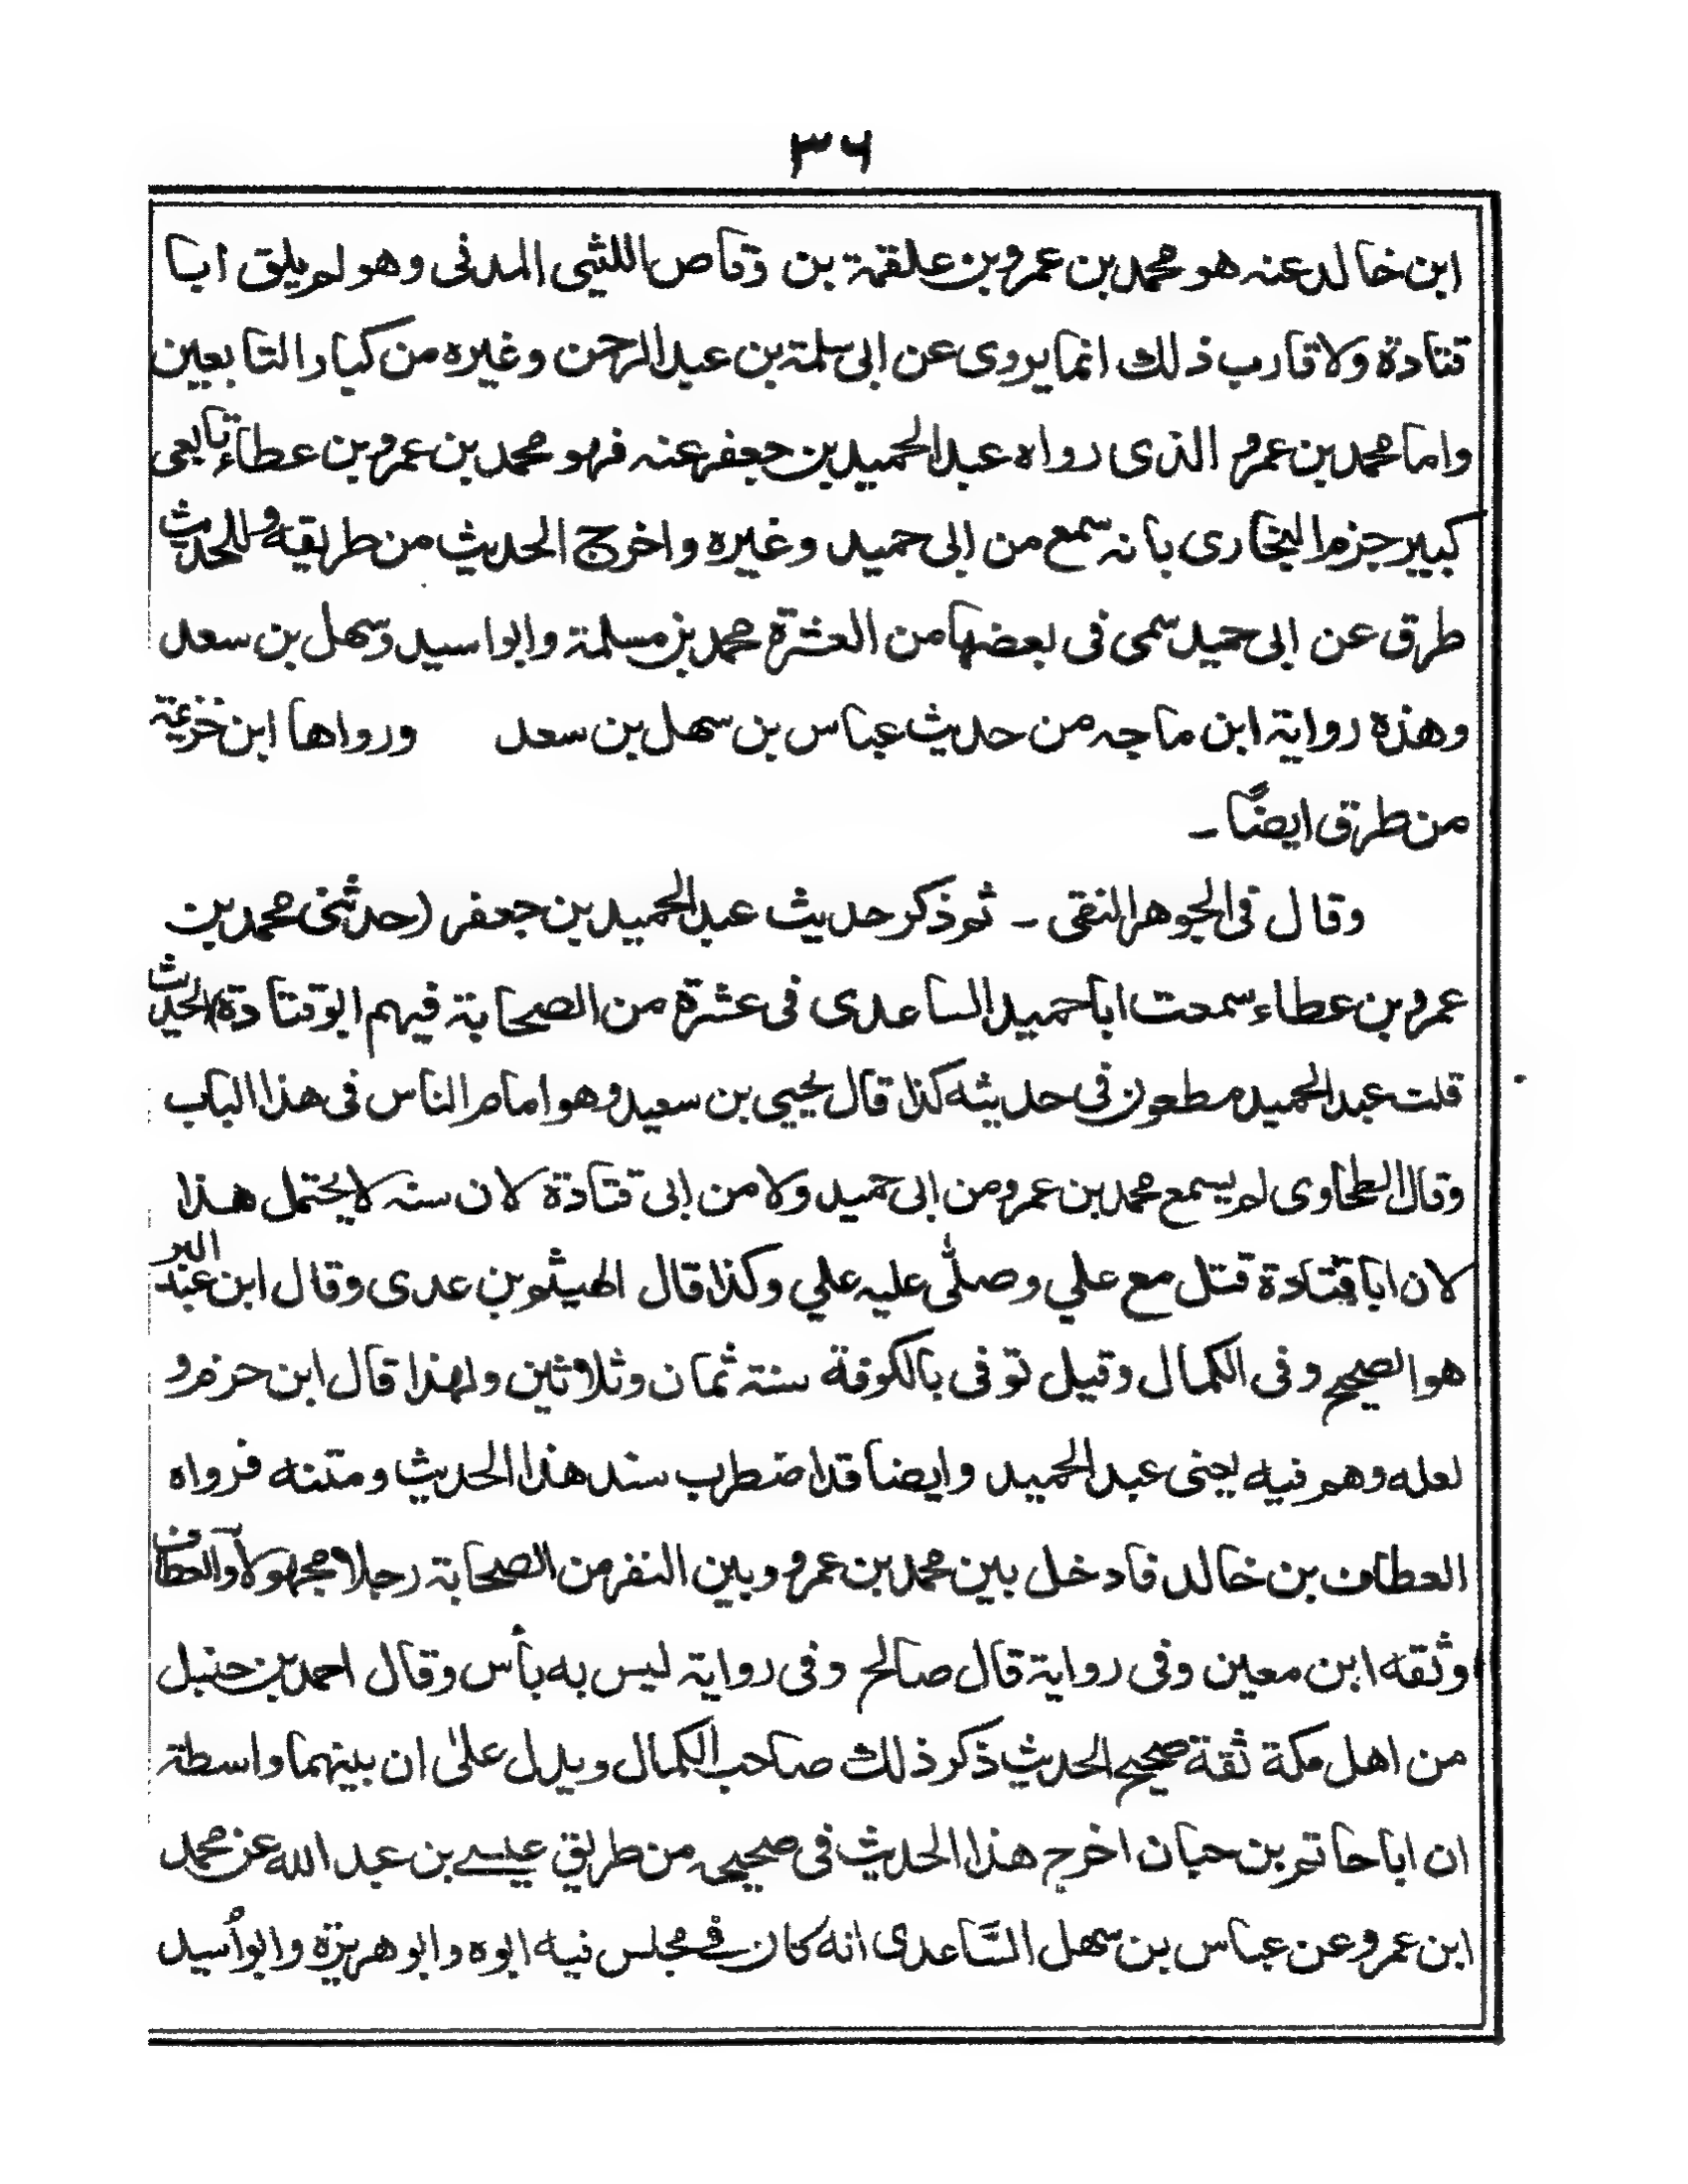 ٣٦
ابن خالد عنه هو محمد بن عمرو بن علقمة بن وقاص الليثى المدنى وهو لم يلق ابا
قتادة ولا قارب ذلك انما يروى عن ابى سلمة بن عبد الرحمن وغيره من كبار التابعين
واما محمد بن عمرو الذى رواه عبد الحميد بن جعفر عنه فهو محمد بن عمرو بن عطاء تابعى
كبير جزم البخارى بانه سمع من ابى حميد وغيره واخرج الحديث من طريقه وللحديث
طرق عن ابى حميد سمى فى بعضها من العشرة محمد بن مسلمة وابو اسيد وسهل بن سعد
وهذه رواية ابن ماجه من حديث عباس بن سهل بن سعد ورواها ابن خزيمة
من طرق ايضًا ـ
وقال فى الجوهر النقى ـ ثم ذكر حديث عبد الحميد بن جعفر (حدثنى محمد بن
عمرو بن عطاء سمعت ابا حميد الساعدى فى عشرة من الصحابة فيهم ابو قتادة) الحديث
قلت عبد الحميد مطعون فى حديثه كذا قال يحيى بن سعيد وهو امام الناس فى هذا الباب
وقال الطحاوى لم يسمع محمد بن عمرو من ابى حميد ولا من ابى قتادة لان سنه لا يحتمل هذا
لان ابا قتادة قتل مع علي وصلّى عليه علي وكذا قال الهيثم بن عدى وقال ابن عبد البر
هو الصحيح وفى الكمال وقيل توفى بالكوفة سنة ثمان وثلاثين ولهذا قال ابن حزم و
لعله وهم فيه يعنى عبد الحميد وايضا قد اضطرب سند هذا الحديث ومتنه فرواه
العطاف بن خالد فادخل بين محمد بن عمرو وبين النفر من الصحابة رجلا مجهولا والعطاف
وثقه ابن معين وفى رواية قال صالح وفى رواية ليس به بأس وقال احمد بن حنبل
من اهل مكة ثقة صحيح الحديث ذكر ذلك صاحب الكمال ويدل علىٰ ان بينهما واسطة
ان ابا حاتم بن حبان اخرج هذا الحديث فى صحيحه من طريق عيسے بن عبد الله عن محمد
ابن عمرو عن عباس بن سهل السَّاعدى انه كان فى مجلس فيه ابوه وابو هريرة وابو اُسيد